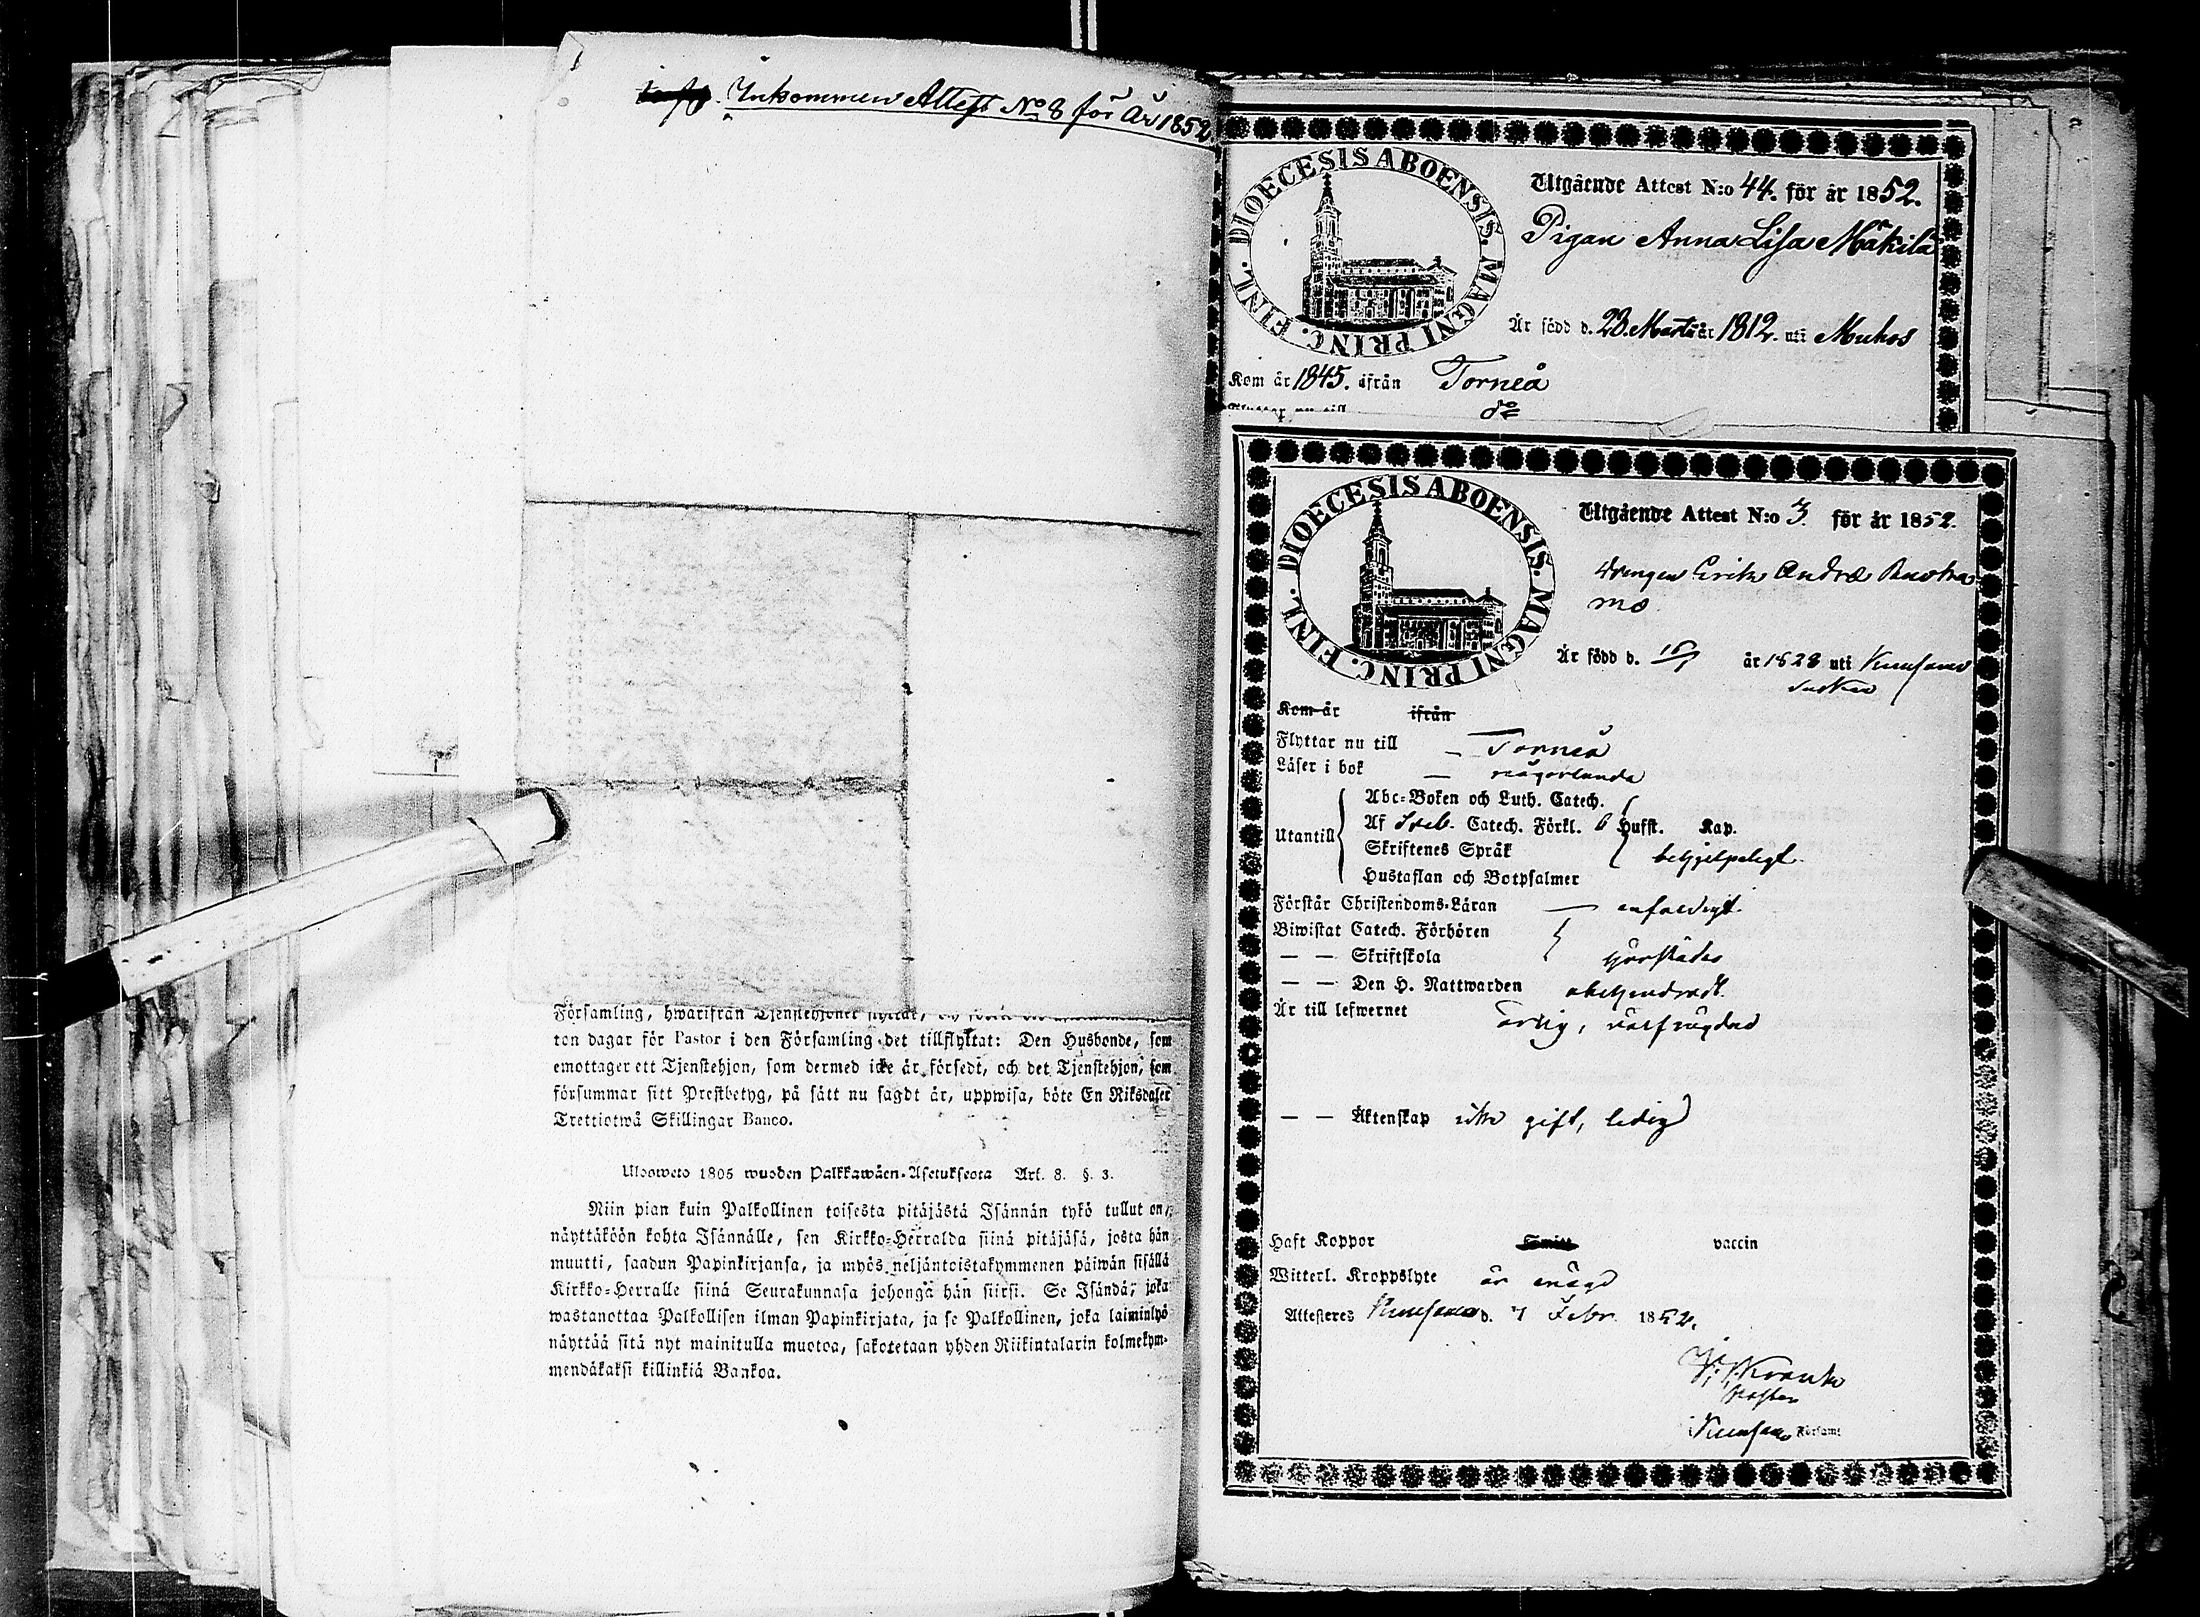 Inkommen Attest No 8 för År 1852
Församling, hwarifrån Tjenstehjonet flyttar,
ton dagar för Pastor i den Församling det tillflyttat: Den Husbonde, som
emottager ett Tjenstehjon, som dermed icke är försedt, och det Tjenstehjon, som
försummar sitt Prestbetyg, på sätt nu sagdt är, uppwisa, böte En Riksdaler
Trettiotwå Skillingar Banco.
Ulosweto 1805 wuoden Palkkawäen-Asetuksesta Art. 8. §. 3.
Niin pian kuin Palkollinen toisesta pitäjästä Isännän tykö tullut on,
näyttäköön kohta Isännälle, sen Kirkko-Herralda siinä pitäjäsä, josta hän
muutti, saadun Papinkirjansa, ja myös neljäntoistakymmenen päiwän sisällä
Kirkko-Herralle siinä Seurakunnasa johonga hän siirsi. Se Isändä, joka
wastanottaa Palkollisen ilman Papinkirjata, ja se Palkollinen, joka laiminlyö
näyttää sitä nyt mainitulla muotoa, sakotetaan yhden Riikintalarin kolmekym-
mendäkaksi killinkiä Bankoa.
DIOECESIS ABOENSIS. MAGNI PRINC. FINL.
Utgående Attest N:o 44. för år 1852.
Pigan Anna Lisa Mäkilä
Är född d. 23 Martii år 1812. uti Muhos
Kom år 1845. ifrån Torneå
Flyttar nu till do
DIOECESIS ABOENSIS. MAGNI PRINC. FINL.
Utgående Attest N:o 3. för år 1852.
Drengen Erik Andre
mo
Är född d. år 1828 uti Kuusamo
Socken
Kom år ifrån
Flyttar nu till – Torneå
Läser i bok – någorlunda
Utantill
Abc-Boken och Luth. Catech.
Af Sveb. Catech. Förkl. 6 Hufst. Kap.
Skriftenes Språk behjelpeligt
Hustaflan och Botpsalmer
Förstår Christendoms-Läran — enfaldigt
Biwistat Catech. Förhören
— — Skriftskola herstädes
— — Den H. Nattwarden obehindradt
Är till lefwernet ärlig, välfrägdad
— — Äktenskap icke gift, ledig
Haft Koppor vaccin
Witterl. Kroppslyte är ej
Attesteres Kuusamo d. 7 Febr. 1852.
Pastor
Kuusamo Församl.